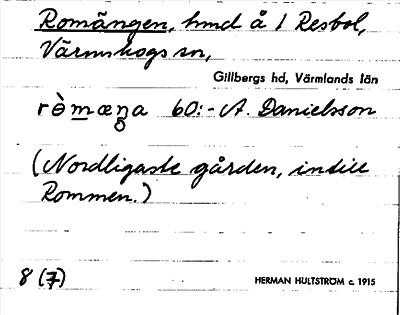 Romängen, hmd å 1 Resbol,
Värmskogs sn,
Gillbergs hd, Värmlands län
rò̀mæŋa 60:- A. Danielsson
(Nordligaste gården, intill
Rommen.)
8 (7)
HERMAN HULTSTRÖM c. 1915